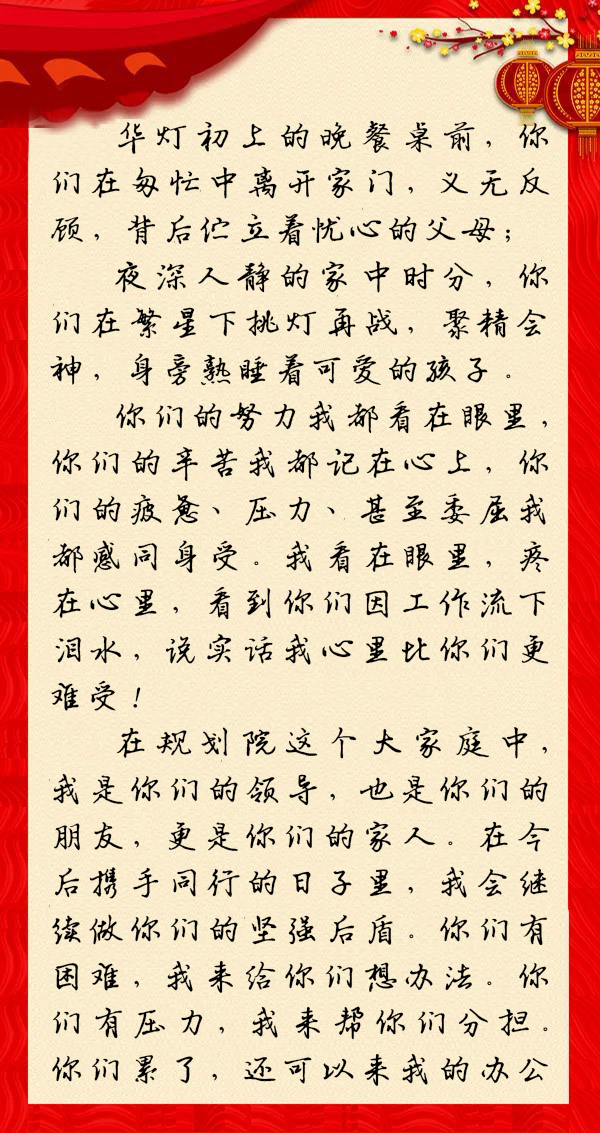 华灯初上的晚餐桌前，你
们在匆忙中离开家门，义无反
顾，背后伫立着忧心的父母；
夜深人静的家中时分，你
们在繁星下挑灯再战，聚精会
神，身旁熟睡着可爱的孩子。
你们的努力我都看在眼里，
你们的辛苦我都记在心上，你
们的疲惫、压力、甚至委屈我
都感同身受。我看在眼里，疼
在心里，看到你们因工作流下
泪水，说实话我心里比你们更
难受！
在规划院这个大家庭中，
我是你们的领导，也是你们的
朋友，更是你们的家人。在今
后携手同行的日子里，我会继
续做你们的坚强后盾。你们有
困难，我来给你们想办法。你
们有压力，我来帮你们分担。
你们累了，还可以来我的办公